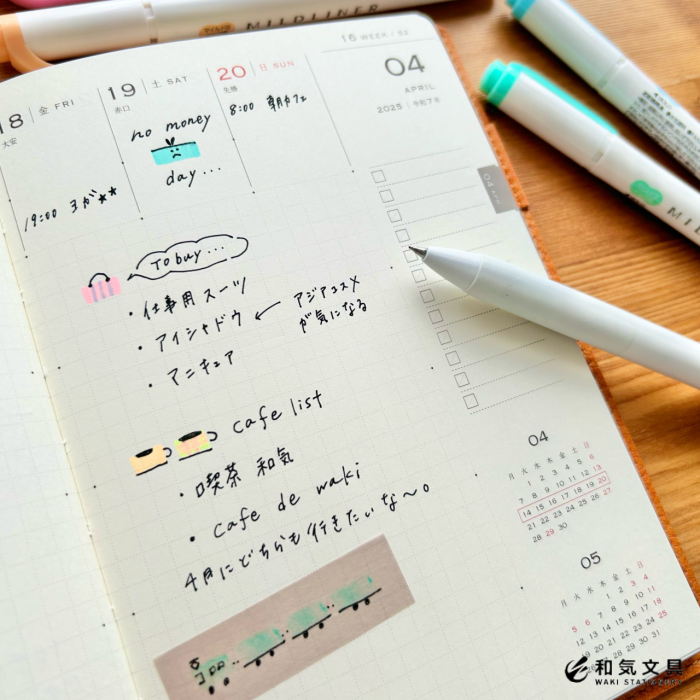 MILDLINER
16 WEEK / 52
04
APRIL
2025 | 令和7年
18 金 FRI
大安
19 土 SAT
赤口
20 日 SUN
先勝
no money
day...
8:00 朝カフェ
19:00 ヨガ★★
04
To buy...
・仕事用スーツ
・アイシャドウ ← アジアコスメ
が気になる
・マニキュア
cafe list
・喫茶 和気
・cafe de waki
4月にどちらも行きたいな〜。
04
月 火 水 木 金 土 日
1 2 3 4 5 6
7 8 9 10 11 12 13
14 15 16 17 18 19 20
21 22 23 24 25 26 27
28 29 30
05
月 火 水 木 金 土 日
1 2 3 4
5 6 7 8 9 10 11
12 13 14 15 16 17 18
19 20 21 22 23 24 25
26 27 28 29 30 31
和気文具
WAKI STATIONERY